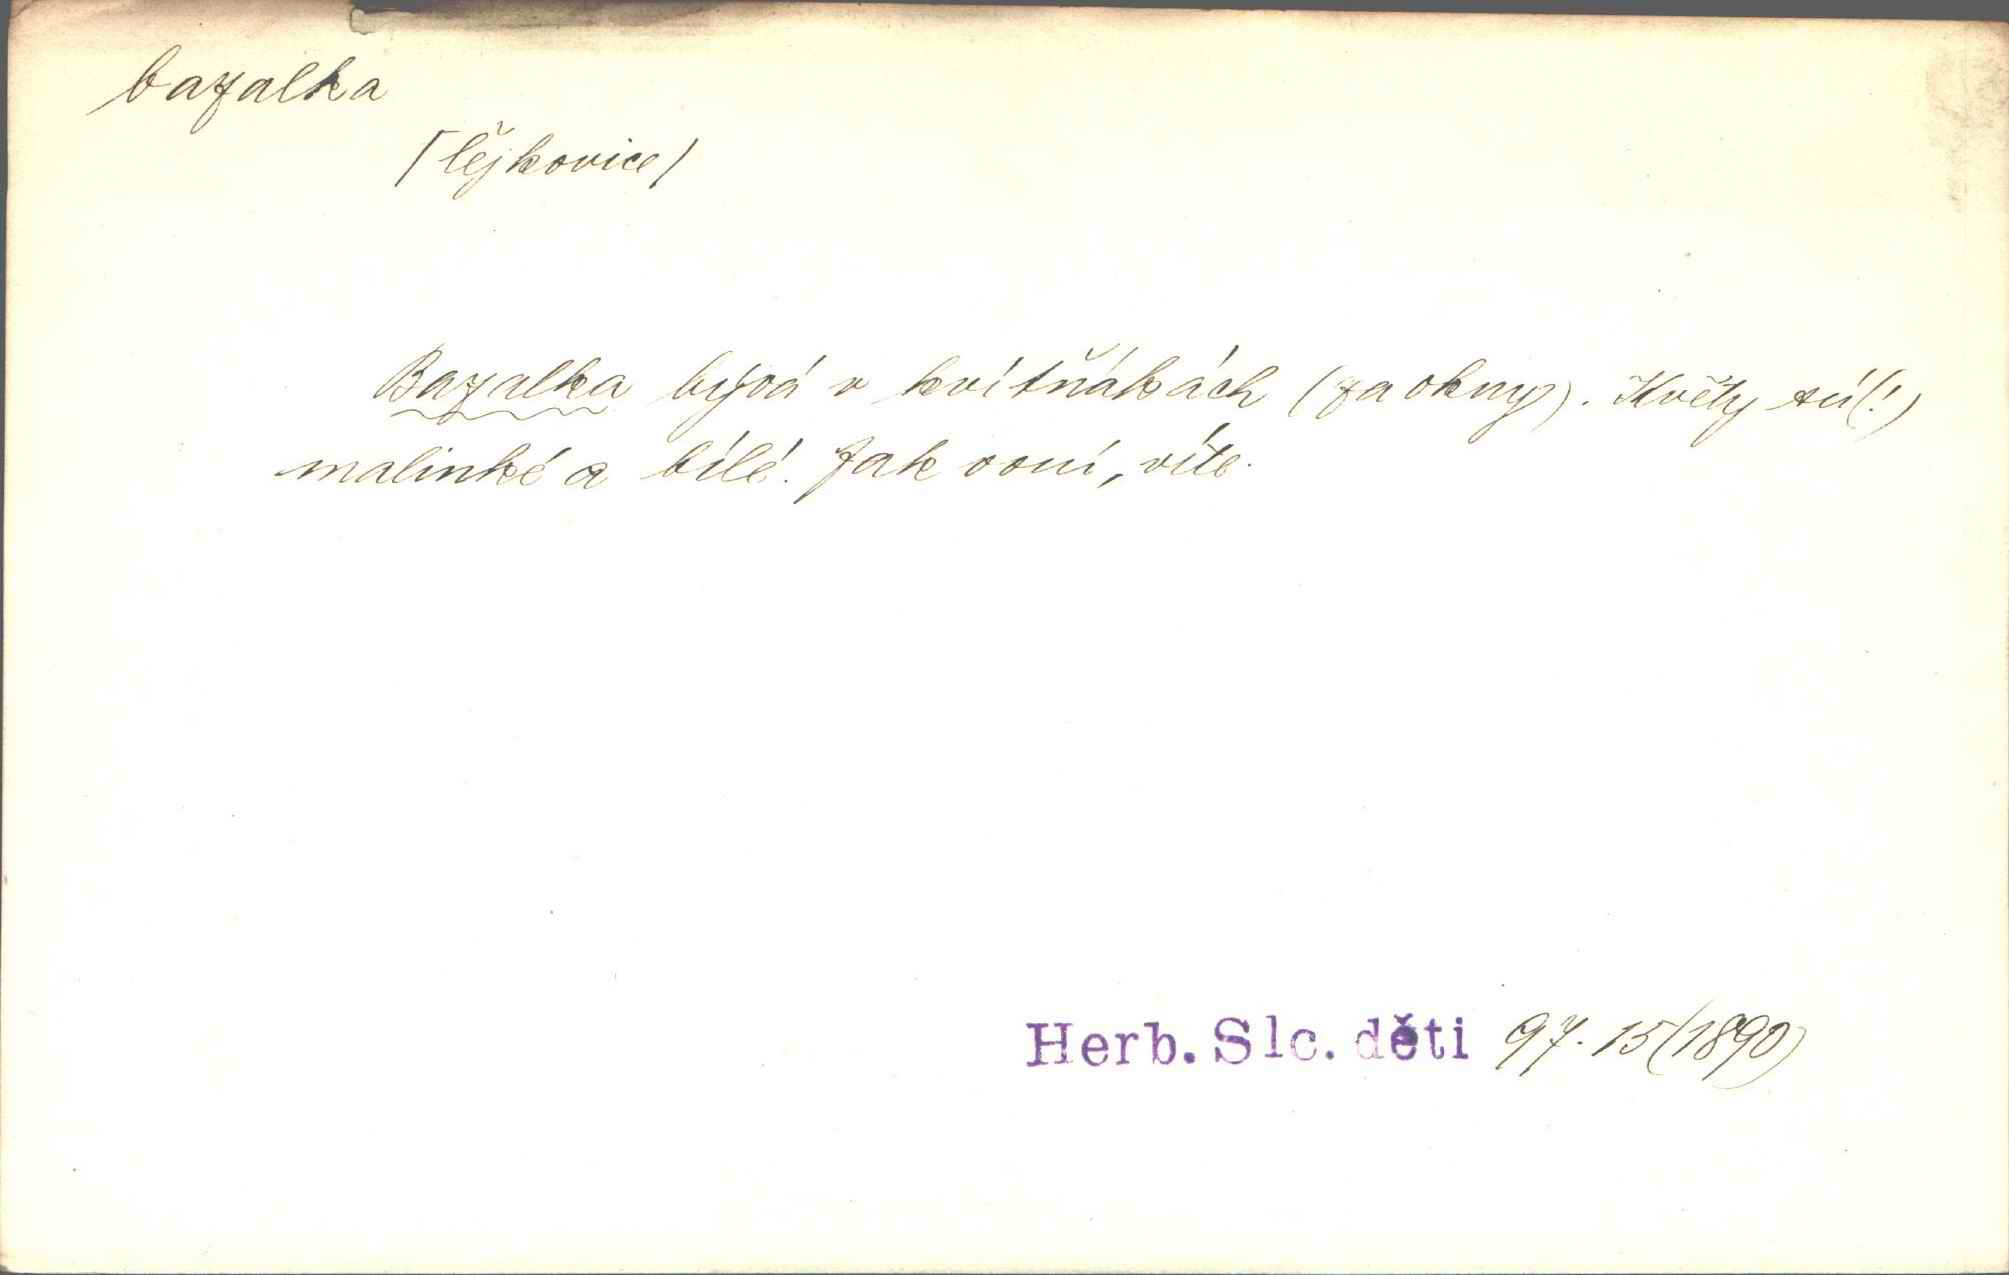 bazalka
/Čejkovice/
Bazalka bývá v kvítňákách (za okny). Květy sú(!)
malinké a bílé. Jak voní, víte.
Herb. Slc. děti 97. 15 (1890)